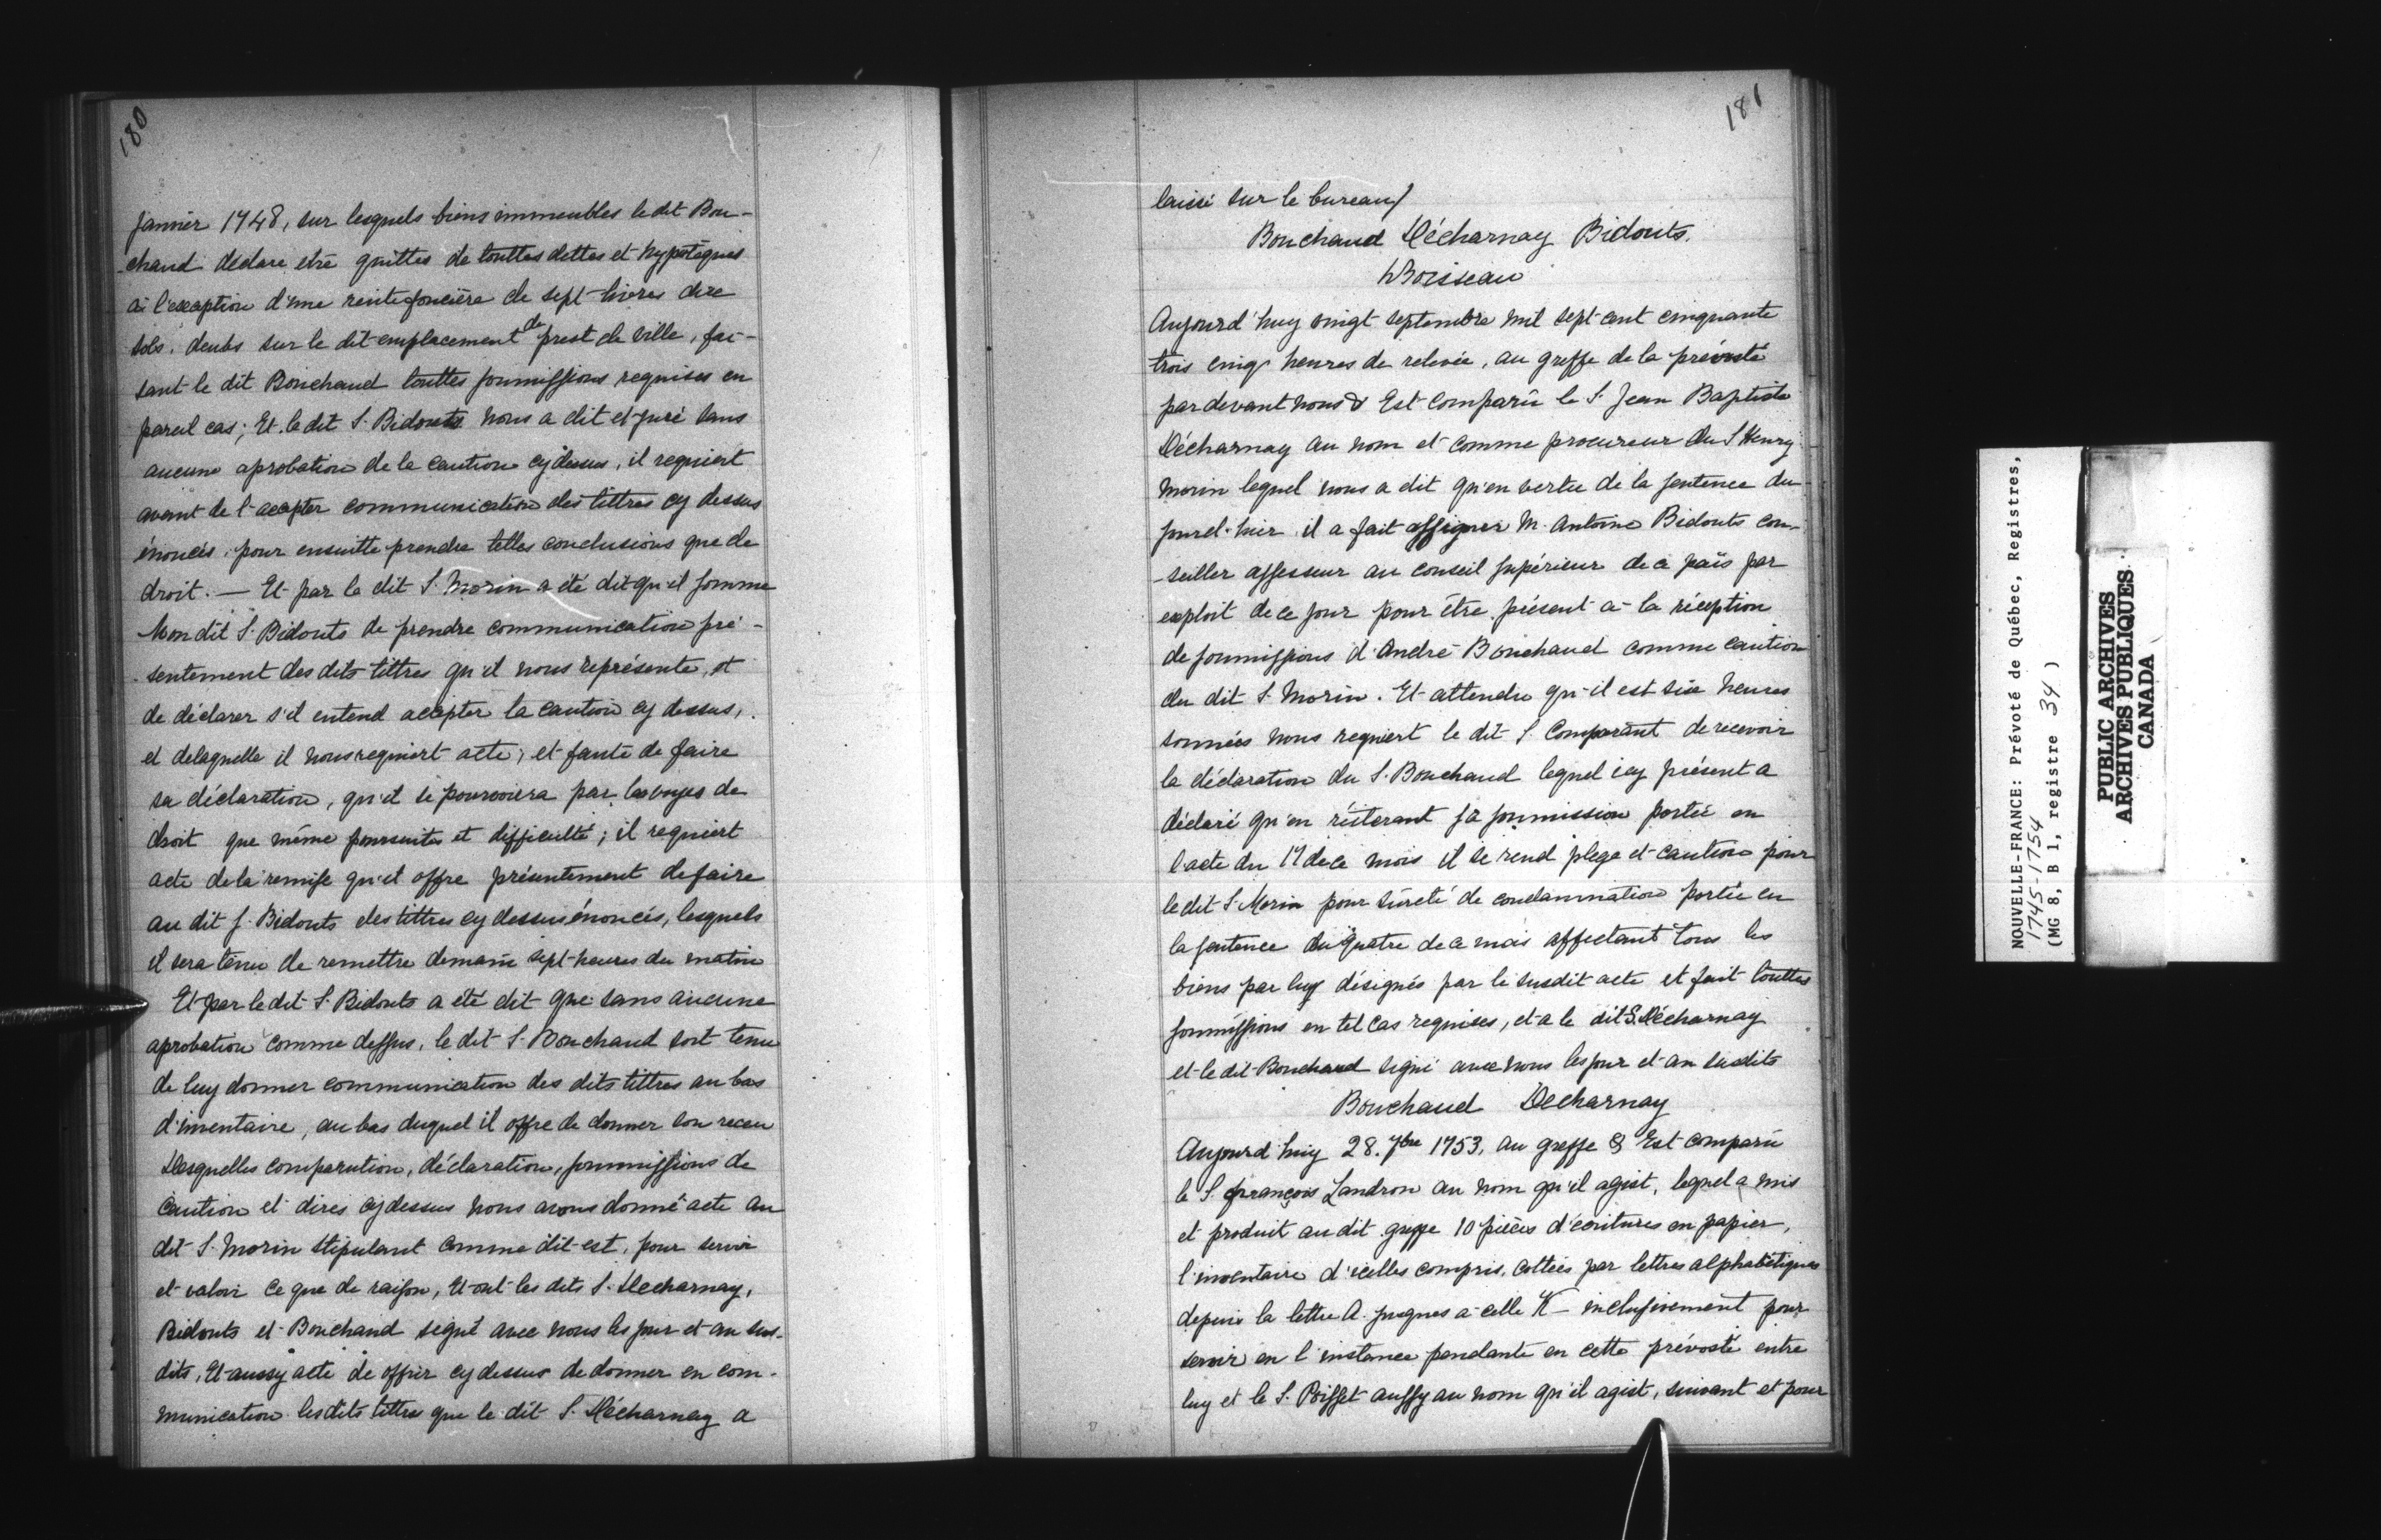 180
janvier 1748, sur lesquels biens immeubles le dit Bou-
chaud déclare etre quittes de touttes dettes et hypotèques
à l'exception d'une rente foncière de sept livres dix
sols, deubs sur le dit emplacement de prest de ville, fai-
sant le dit Bouchaud touttes soumissions requises en
pareil cas; Et le dit S. Bidouts nous a dit et juré sans
aucune aprobation de la caution cydessus, il requiert
avant de l'accepter communication des tittres cy dessus
énoncés, pour ensuitte prendre telles conclusions que de
droit. — Et par le dit S. Morin a été dit qu'il somme
Mon dit S. Bidouts de prendre communication pré-
sentement des dits tittres qu'il nous représente, et
de déclarer s'il entend accepter la caution cy dessus,
et delaquelle il nous requiert acte; et faute de faire
sa déclaration, qu'il se pourvoiera par les voyes de
droit que même poursuites et difficulté; il requiert
acte de la remise qu'il offre présentement de faire
au dit S. Bidouts des tittres cy dessus énoncés, lesquels
il sera tenu de remettre demain sept heures du matin
Et par le dit S. Bidouts a été dit que sans aucune
aprobation comme dessus, le dit S. Bouchaud soit tenu
de luy donner communication des dits tittres au bas
d'inventaire, au bas duquel il offre de donner son receu
Desquelles comparution, déclaration, soummissions de
caution et dires cydessus nous avons donné acte au
dit S. Morin stipulant comme dit est, pour servir
et valoir ce que de raison, Et ont les dits S. Décharnay,
Bidouts et Bouchaud signé avec nous les jour et an sus-
dits, Et aussy acte de offrir cydessus de donner en com-
munication lesdits tittres que le dit S. Décharnay a
181
laissé sur le bureau/
Bouchaud Décharnay Bidouts.
hBoisseau
Aujourd'huy vingt septembre mil sept cent cinquante
trois cinq heures de relevée, au greffe de la prévosté
pardevant nous & Est comparû le S. Jean Baptiste
Décharnay au nom et comme procureur du S Henry
Morin lequel nous a dit qu'en vertu de la sentence du
jourd-hier il a fait assigner M. Antoine Bidouts con-
-seiller assesseur au conseil supérieur de ce païs par
exploit de ce jour pour être présent à la réception
de soumissions d'André Bouchaud comme caution
du dit S. Morin. Et attendu qu'il est six heures
sonnées nous requiert le dit S Comparant de recevoir
la déclaration du S. Bouchaud lequel icy présent a
déclaré qu'en réiterant sa soumission portée en
l'acte du 17 de ce mois il se rend plege et caution pour
le dit S. Morin pour sûreté de condamnation portée en
la sentence du quatre de ce mois affectant tous les
biens par luy désignés par le susdit acte et fait touttes
soumissions en tel cas requises, et a le dit S. Décharnay
et le dit Bouchaud signé avec nous les jour et an susdits
Bouchaud Decharnay
Aujourd'huy 28. 7bre 1753, au greffe & Est comparû
le S. françois Landron au nom qu'il agist, lequel a mis
et produit au dit greffe 10 pièces d'écritures en papier,
l'inventaire d'icelles compris, cottées par lettres alphabétiques
depuis la lettre A. jusques à celle K – inclusivement pour
servir en l'instance pendante en cette prévosté entre
luy et le S. Poisset aussy au nom qu'il agist, suivant et pour
NOUVELLE-FRANCE: Prévoté de Québec, Registres,
1745-1754
(MG 8, B 1, registre 34 )
PUBLIC ARCHIVES
ARCHIVES PUBLIQUES
CANADA